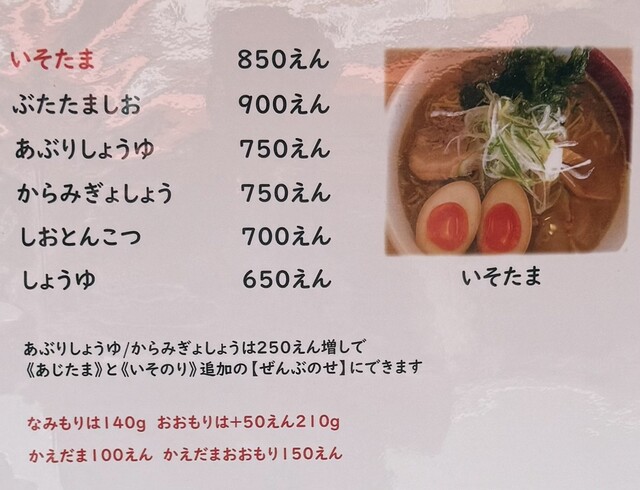 いそたま 850えん
ぶたたましお 900えん
あぶりしょうゆ 750えん
からみぎょしょう 750えん
しおとんこつ 700えん
しょうゆ 650えん
いそたま
あぶりしょうゆ/からみぎょしょうは250えん増しで
《あじたま》と《いそのり》追加の【ぜんぶのせ】にできます
なみもりは140g おおもりは+50えん210g
かえだま100えん かえだまおおもり150えん